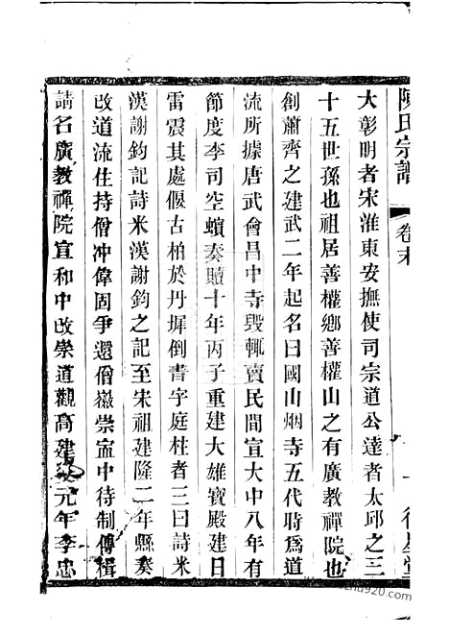 陳氏宗譜
卷末
大彰明者宋淮東安撫使司宗道公達者太邱之三
十五世孫也祖居善權鄉善權山之有廣教禪院也
創蕭齊之建武二年起名曰國山烟寺五代時爲道
流所據唐武會昌中寺毀輒賣民間宣大中八年有
節度李司空蠙奏贖十年丙子重建大雄寶殿建日
雷震其處偃古柏於丹墀倒書字庭柱者三曰詩米
漢謝鈞記詩米漢謝鈞之記至宋祖建隆二年縣奏
改道流住持僧冲偉固爭還僧嶽崇寍中待制傅楫
請名廣教禪院宣和中改崇道觀高建炎元年李忠
www.shuge920.com